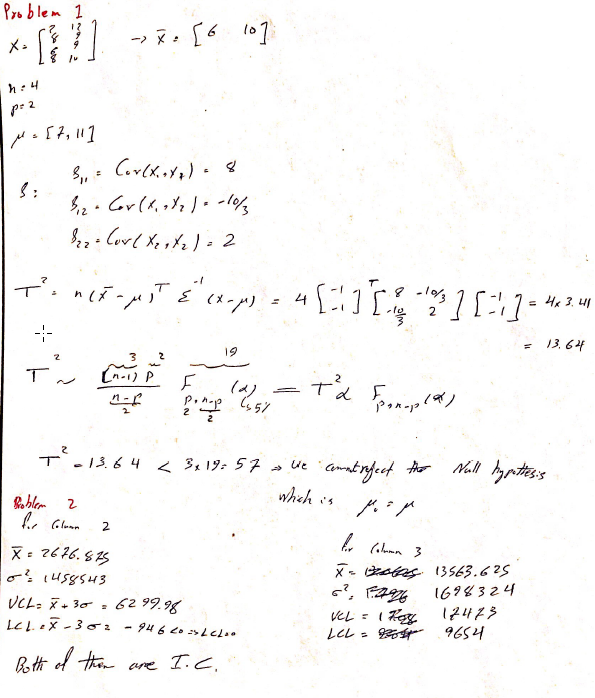 Problem 1
X = [2 12 8 9 6 9 8 10] → x̄ = [6 10]
n = 4
p = 2
μ = [7, 11]
S:
S₁₁ = Cov(X₁, X₁) = 8
S₁₂ = Cov(X₁, X₂) = -10/3
S₂₂ = Cov(X₂, X₂) = 2
T² = n(x̄ - μ)ᵀ Σ⁻¹ (x - μ) = 4 [-1 -1]ᵀ [8 -10/3 -10/3 2] [-1 -1] = 4 x 3.41
= 13.64
3 2 19
T² ~ (n-1) p / n-p F p, n-p (α) = T²α F p, n-p (α)
2 2 2 5%
T² = 13.64 < 3 x 19 = 57 ⇒ We cannot reject the Null hypothesis
which is μ₀ = μ
Problem 2
for Column 2
x̄ = 2676.875
σ² = 1458543
UCL = x̄ + 3σ = 6299.98
LCL = x̄ - 3σ = -946 <0 => LCL=0
for Column 3
x̄ = 13563.625
σ² = 1698324
UCL = 17473
LCL = 9654
Both of them are I.C.